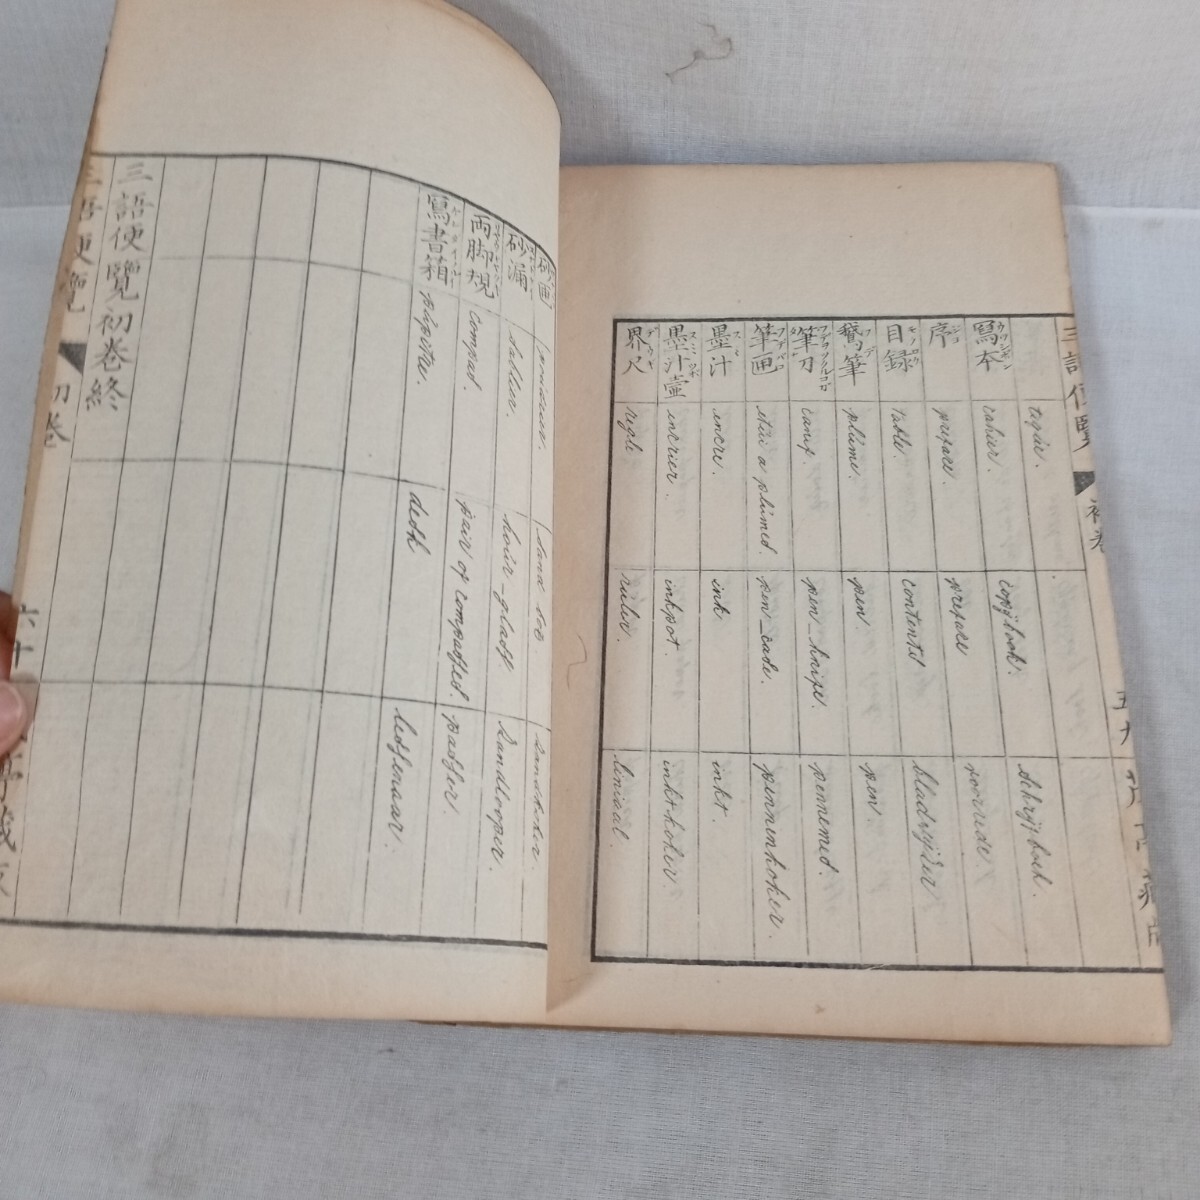 三語便覽
初卷
五九
寫本 cahier. copijbook. schrijfboek.
序 prefare prefare voorrede.
目録 table. contentś bladwijzer
鵞筆 plúme. pen. pen.
筆刀 canif. pen-knife. pennemes.
筆匣 etúi a plúmes. pen-case. pennenkoker.
墨汁 encre. ink inkt.
墨汁壷 encrier. inkpot. inktkoker.
界尺 regle ruler. liniaal.
砂匣 sand box. zandkoker.
砂漏 sablier. hoúr-glass. zandlooper.
両脚規 compas. pair of compasses. passer.
寫書箱 púpitre. desk lessenaar.
三語便覽初卷終
三語便覽
初卷
六十